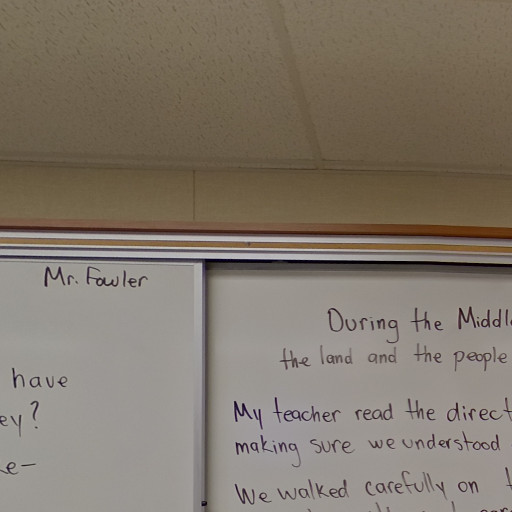 Mr. Fowler
have
ey?
ke-
During the Middl
the land and the people
My teacher read the direct
making sure we understood
We walked carefully on